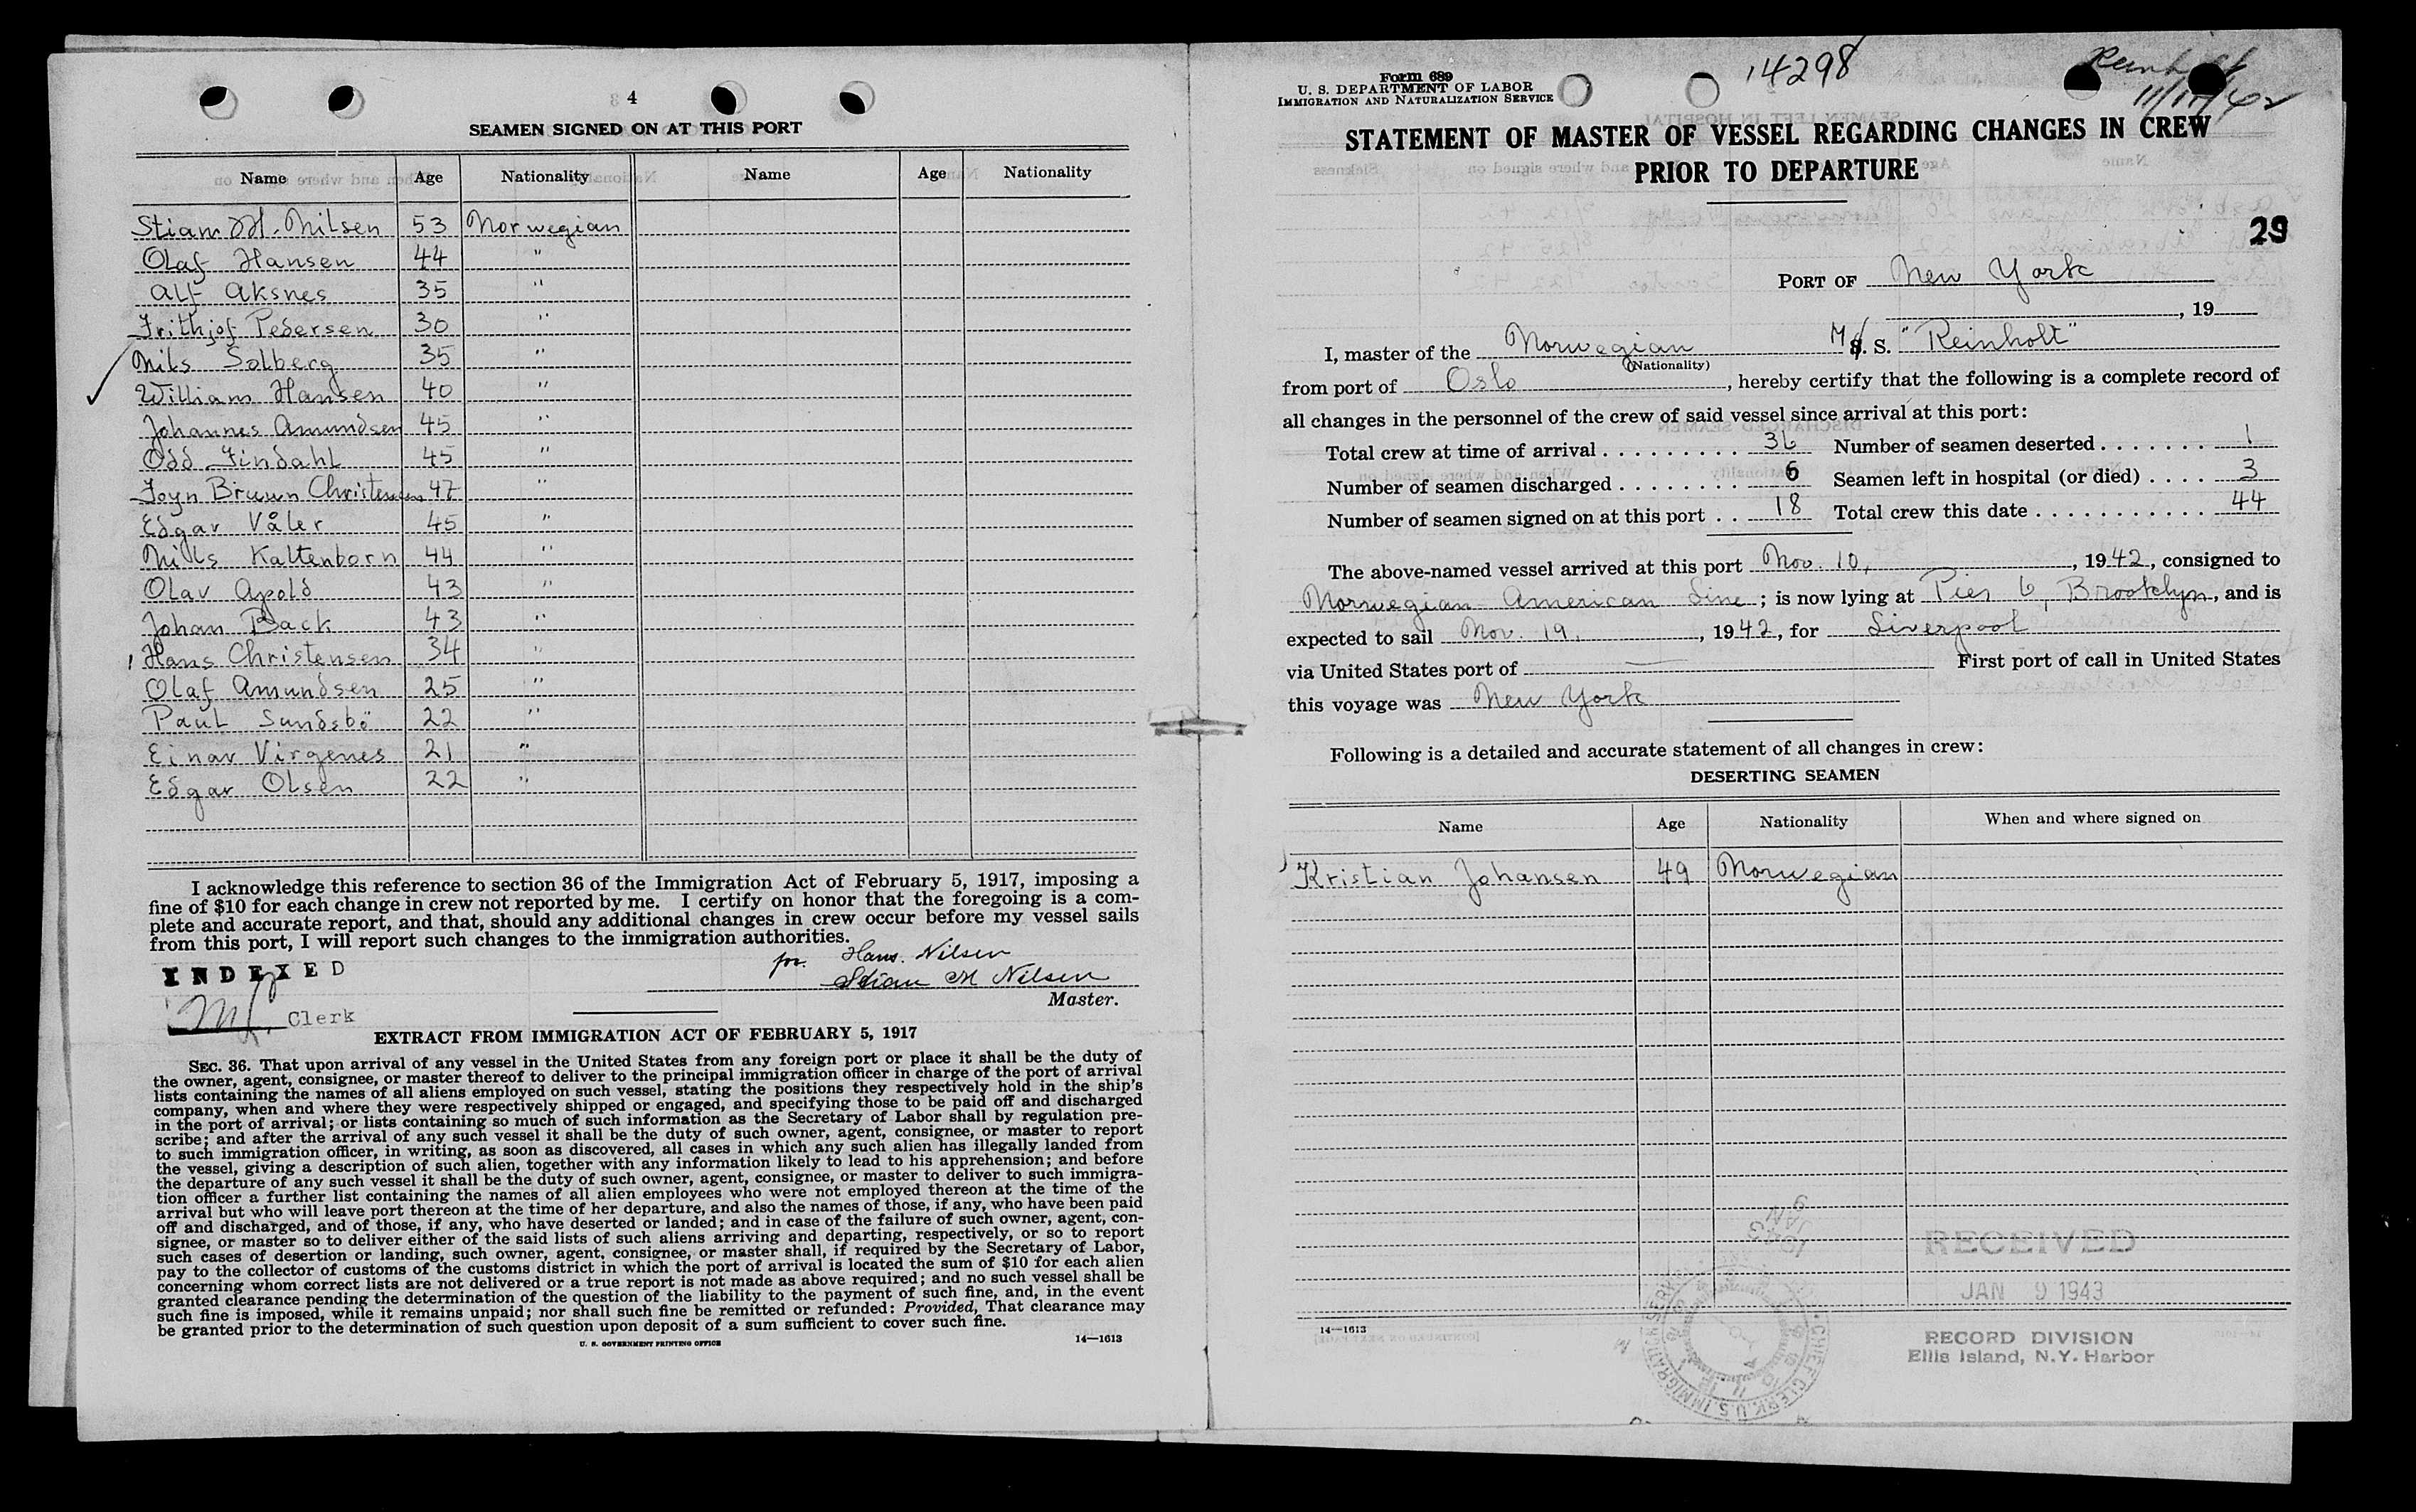 4
SEAMEN SIGNED ON AT THIS PORT
Name Age Nationality Name Age Nationality
Stiam M. Nilsen 53 Norwegian
Olaf Hansen 44 "
Alf Aksnes 35 "
Frithjof Pedersen 30 "
Nils Solberg 35 "
William Hansen 40 "
Johannes Amundsen 45 "
Odd Findahl 45 "
Bruun Christensen 47 "
Edgar Våler 45 "
Nills Kaltenborn 44 "
Olav Apold 43 "
Johan Back 43 "
Hans Christensen 34 "
Olaf Amundsen 25 "
Paul Sundsbö 22 "
Einar Virgenes 21 "
Edgar Olsen 22 "
I acknowledge this reference to section 36 of the Immigration Act of February 5, 1917, imposing a
fine of $10 for each change in crew not reported by me. I certify on honor that the foregoing is a com-
plete and accurate report, and that, should any additional changes in crew occur before my vessel sails
from this port, I will report such changes to the immigration authorities.
INDEXED
pr. Hans. Nilsen
Stian M Nilsen
Master.
Clerk
EXTRACT FROM IMMIGRATION ACT OF FEBRUARY 5, 1917
SEC. 36. That upon arrival of any vessel in the United States from any foreign port or place it shall be the duty of
the owner, agent, consignee, or master thereof to deliver to the principal immigration officer in charge of the port of arrival
lists containing the names of all aliens employed on such vessel, stating the positions they respectively hold in the ship's
company, when and where they were respectively shipped or engaged, and specifying those to be paid off and discharged
in the port of arrival; or lists containing so much of such information as the Secretary of Labor shall by regulation pre-
scribe; and after the arrival of any such vessel it shall be the duty of such owner, agent, consignee, or master to report
to such immigration officer, in writing, as soon as discovered, all cases in which any such alien has illegally landed from
the vessel, giving a description of such alien, together with any information likely to lead to his apprehension; and before
the departure of any such vessel it shall be the duty of such owner, agent, consignee, or master to deliver to such immigra-
tion officer a further list containing the names of all alien employees who were not employed thereon at the time of the
arrival but who will leave port thereon at the time of her departure, and also the names of those, if any, who have been paid
off and discharged, and of those, if any, who have deserted or landed; and in case of the failure of such owner, agent, con-
signee, or master so to deliver either of the said lists of such aliens arriving and departing, respectively, or so to report
such cases of desertion or landing, such owner, agent, consignee, or master shall, if required by the Secretary of Labor,
pay to the collector of customs of the customs district in which the port of arrival is located the sum of $10 for each alien
concerning whom correct lists are not delivered or a true report is not made as above required; and no such vessel shall be
granted clearance pending the determination of the question of the liability to the payment of such fine, and, in the event
such fine is imposed, while it remains unpaid; nor shall such fine be remitted or refunded: Provided, That clearance may
be granted prior to the determination of such question upon deposit of a sum sufficient to cover such fine.
U. S. GOVERNMENT PRINTING OFFICE 14—1613
Form 689
U. S. DEPARTMENT OF LABOR
IMMIGRATION AND NATURALIZATION SERVICE
14298
STATEMENT OF MASTER OF VESSEL REGARDING CHANGES IN CREW
PRIOR TO DEPARTURE
29
PORT OF New York
, 19
I, master of the Norwegian M/S. S. "Reinholt"
(Nationality)
from port of Oslo, hereby certify that the following is a complete record of
all changes in the personnel of the crew of said vessel since arrival at this port:
Total crew at time of arrival . . . . . . . . . 36 Number of seamen deserted . . . . . . . . 1
Number of seamen discharged . . . . . . . . 6 Seamen left in hospital (or died) . . . . 3
Number of seamen signed on at this port . . 18 Total crew this date . . . . . . . . . . . 44
The above-named vessel arrived at this port Nov. 10, 1942, consigned to
Norwegian American Line; is now lying at Pier 6, Brooklyn, and is
expected to sail Nov. 19, 1942, for Liverpool
via United States port of — First port of call in United States
this voyage was New York
Following is a detailed and accurate statement of all changes in crew:
DESERTING SEAMEN
Name Age Nationality When and where signed on
Kristian Johansen 49 Norwegian
JAN 9 1943
RECEIVED
JAN 9 1943
RECORD DIVISION
Ellis Island, N.Y. Harbor
14—1613
CHIEF CLERK U.S. IMMIGRATION SERV.